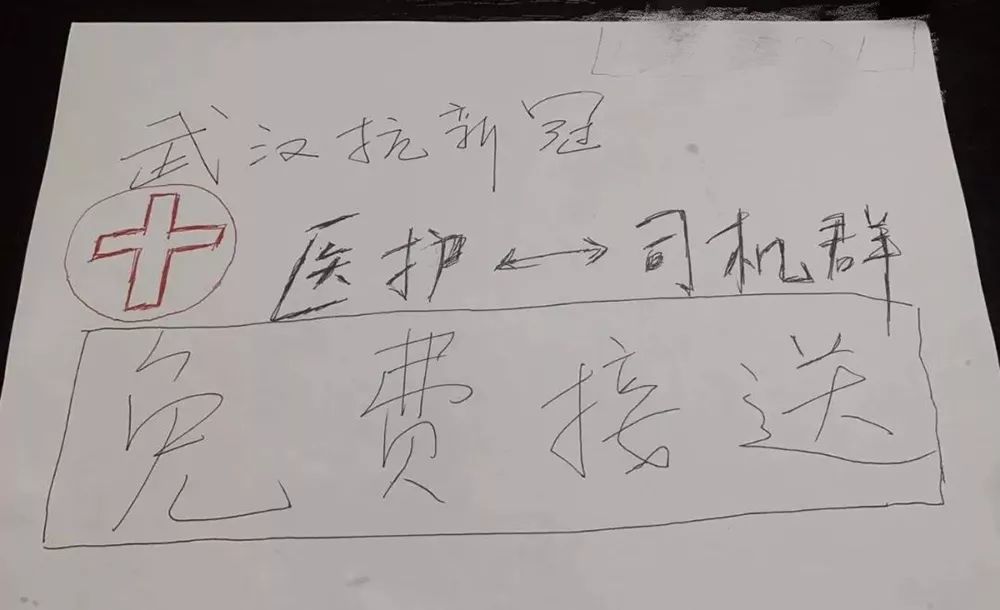 武汉抗新冠
医护↔司机群
免费接送